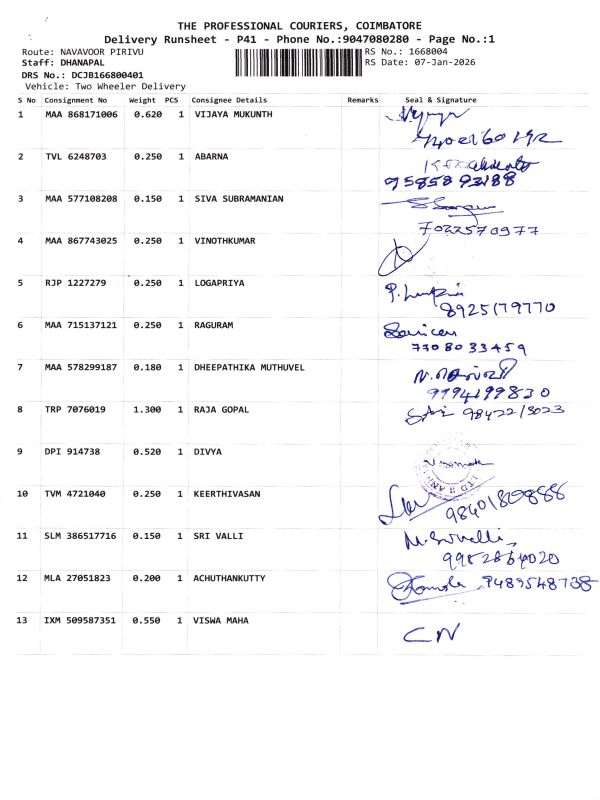 THE PROFESSIONAL COURIERS, COIMBATORE
Delivery Runsheet - P41 - Phone No.:9047080280 - Page No.:1
Route: NAVAVOOR PIRIVU RS No.: 1668004
Staff: DHANAPAL RS Date: 07-Jan-2026
DRS No.: DCJB166800401
Vehicle: Two Wheeler Delivery
S No Consignment No Weight PCS Consignee Details Remarks Seal & Signature
1 MAA 868171006 0.620 1 VIJAYA MUKUNTH
2 TVL 6248703 0.250 1 ABARNA
9585893188
3 MAA 577108208 0.150 1 SIVA SUBRAMANIAN
7022570977
4 MAA 867743025 0.250 1 VINOTHKUMAR
5 RJP 1227279 0.250 1 LOGAPRIYA
8925179770
6 MAA 715137121 0.250 1 RAGURAM
7708033459
7 MAA 578299187 0.180 1 DHEEPATHIKA MUTHUVEL
9794199830
8 TRP 7076019 1.300 1 RAJA GOPAL
9 DPI 914738 0.520 1 DIVYA
10 TVM 4721040 0.250 1 KEERTHIVASAN
11 SLM 386517716 0.150 1 SRI VALLI
12 MLA 27051823 0.200 1 ACHUTHANKUTTY 9489548738
13 IXM 509587351 0.550 1 VISWA MAHA CN